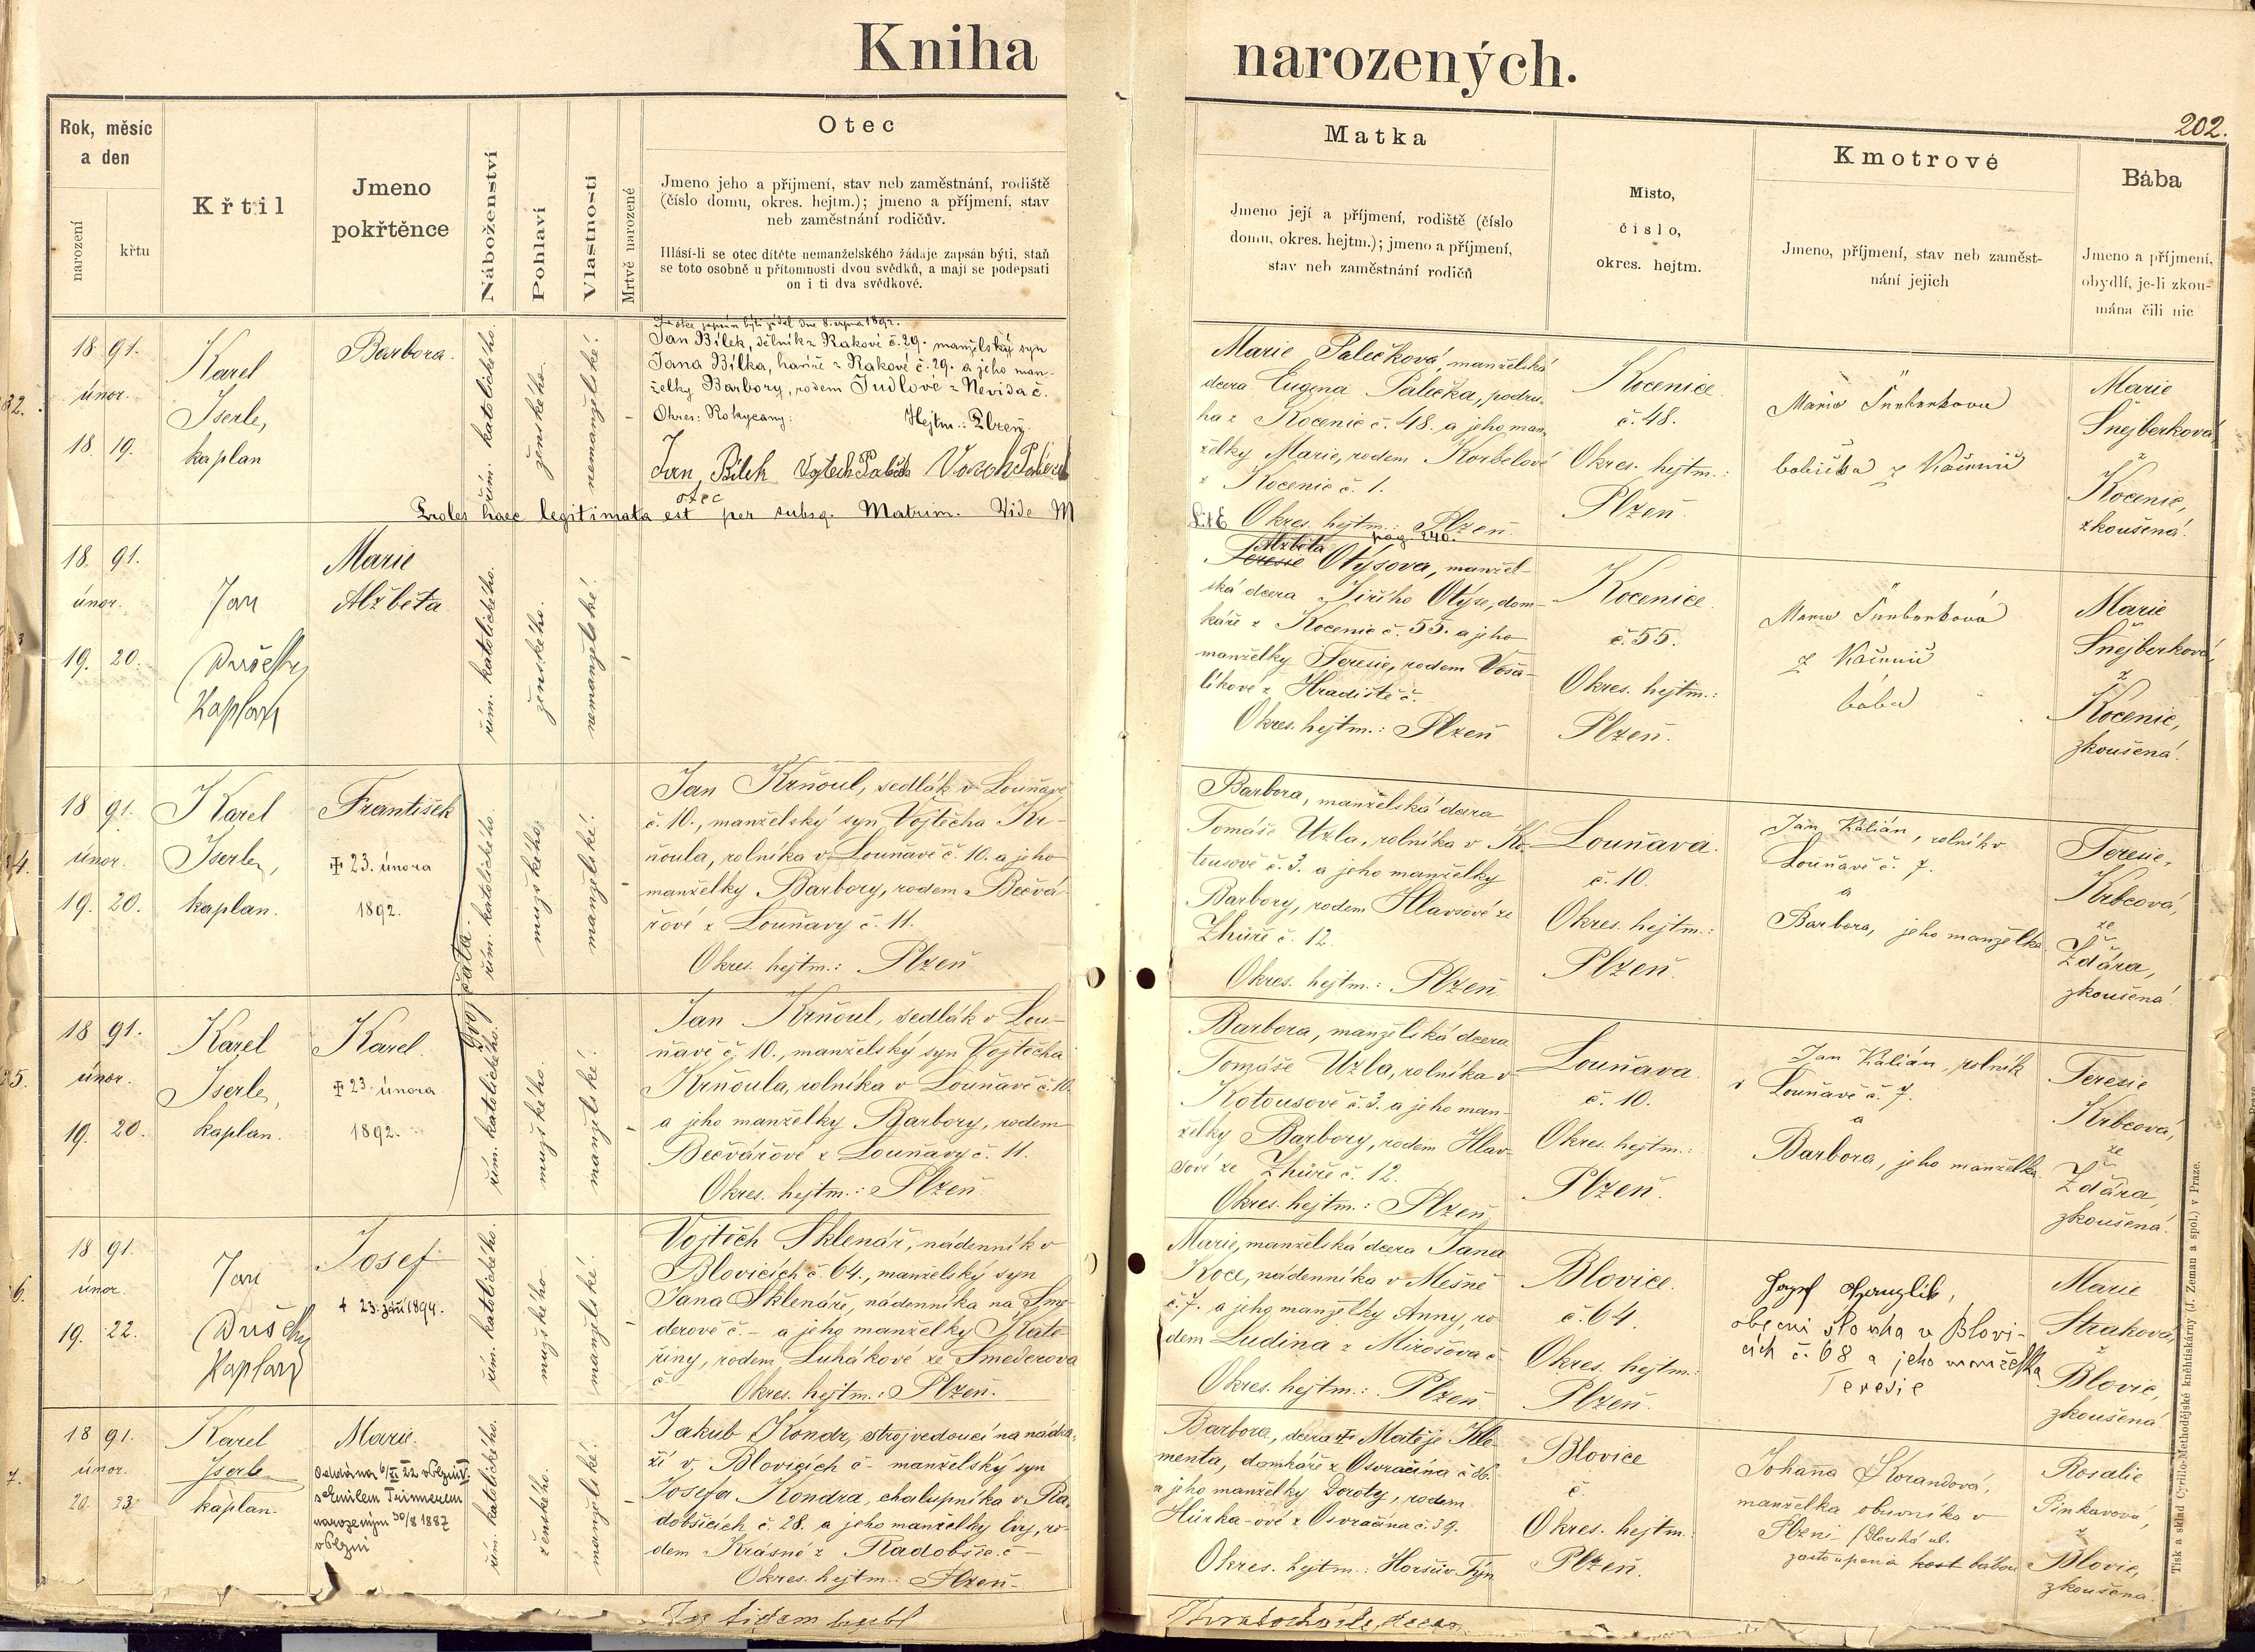 Kniha narozených.
202.
Rok, měsíc
a den
narození
křtu
Křtil
Jmeno
pokřtěnce
Náboženství
Pohlaví
Vlastnosti
Mrtvě narozené
Otec
Jmeno jeho a příjmení, stav neb zaměstnání, rodiště
(číslo domu, okres. hejtm.); jmeno a příjmení, stav
neb zaměstnání rodičův.
Hlásí-li se otec dítěte nemanželského žádaje zapsán býti, staň
se toto osobně u přítomnosti dvou svědků, a mají se podepsati
on i ti dva svědkové.
Matka
Jmeno její a příjmení, rodiště (číslo
domu, okres. hejtm.); jmeno a příjmení,
stav neb zaměstnání rodičů
Místo,
číslo,
okres. hejtm.
Kmotrové
Jmeno, příjmení, stav neb zaměst-
nání jejich
Bába
Jmeno a příjmení,
obydlí, je-li zkou-
mána čili nic
18 91.
únor.
18. 19.
Karel
Iserle,
kaplan
Barbora.
řím. katolického.
ženského.
nemanželské.
Za otce zapsán býti žádal dne 8. srpna 1892.
Jan Bílek, dělník z Rakové č. 29. manželský syn
Jana Bílka, havíře z Rakové č. 29. a jeho man-
želky Barbory, rodem Judlové z Nevida č.
Okres: Rokycany: Hejtm.: Plzeň.
Jan Bílek
otec
Proles haec legitimata est per subsq. Matrim. Vide M
Lit E
pag 240.
Marie Palečková, manželská
dcera Eugena Palečka, podru-
ha z Kocenic č. 48. a jeho man-
želky Marie, rodem Korbelové
z Kocenic č. 1.
Okres. hejtm.: Plzeň
Kocenice
č. 48.
Okres. hejtm.:
Plzeň.
babička z
Marie
Šnejberková
z
Kocenic,
zkoušená.
18. 91.
únor.
19. 20.
Jan
Dušek
Kaplan
Marie
Alžběta
řím. katolického.
ženského.
nemanželské.
Alžběta
Teresie Otýsova, manžel-
ská dcera Jiřího Otýse, dom-
káře z Kocenic č. 55. a jeho
manželky Teresie, rodem Vosa-
líkové z Hradiště č.
Okres. hejtm.: Plzeň
Kocenice.
č. 55.
Okres. hejtm.:
Plzeň.
bába
Marie
Šnejberková
z
Kocenic,
zkoušená.
18 91.
únor.
19. 20.
Karel
Iserle,
kaplan.
František
✝ 23. února
1892.
Dvojčata.
řím. katolického
mužského.
manželské.
Jan Krňoul, sedlák v Louňavě
č. 10., manželský syn Vojtěcha Kr-
ňoula, rolníka v Louňavě č. 10. a jeho
manželky Barbory, rodem Bečvá-
řové z Louňavy č. 11.
Okres. hejtm.: Plzeň
Barbora, manželská dcera
Tomáše Uzla, rolníka v Ko-
tousově č. 3. a jeho manželky
Barbory, rodem Hlavsové ze
Zhůře č. 12.
Okres. hejtm.: Plzeň
Louňava.
č. 10.
Okres. hejtm.:
Plzeň.
Jan Kalián, rolník v
Louňavě č. 7.
a
Barbora, jeho manželka.
Teresie,
Krbcová,
ze
Žďára,
zkoušená.
18 91.
únor.
19. 20.
Karel
Iserle,
kaplan.
Karel.
✝ 23. února
1892.
řím. katolického.
mužského.
manželské.
Jan Krňoul, sedlák v Lou-
ňavě č. 10., manželský syn Vojtěcha
Krňoula, rolníka v Louňavě č. 10.
a jeho manželky Barbory, rodem
Bečvářové z Louňavy č. 11.
Okres. hejtm.: Plzeň.
Barbora, manželská dcera
Tomáše Uzla, rolníka v
Kotousově č. 3. a jeho man-
želky Barbory, rodem Hlav-
sové ze Zhůře č. 12.
Okres. hejtm.: Plzeň.
Louňava.
č. 10.
Okres. hejtm.:
Plzeň.
Jan Kalián, rolník
v Louňavě č. 7.
a
Barbora, jeho manželka.
Teresie
Krbcová,
ze
Žďára,
zkoušená.
18 91.
únor.
19. 22.
Jan
Dušek
Kaplan
Josef
✝ 23. září 1894.
řím. katolického.
mužského.
manželské.
Vojtěch Sklenář, nádenník v
Blovicích č. 64., manželský syn
Jana Sklenáře, nádenníka na Sme-
derově č. – a jeho manželky Kate-
řiny, rodem Lukákové ze Smederova
č.
Okres. hejtm.: Plzeň.
Marie, manželská dcera Jana
Koce, nádenníka v Mešně
č. 7. a jeho manželky Anny, ro-
dem Ludina z Mirošova č
Okres. hejtm.: Plzeň
Blovice.
č. 64.
Okres. hejtm.:
Plzeň.
Josef
obecní sluha v Blovi-
cích č. 68 a jeho manželka
Teresie
Marie
Straková,
z
Blovic,
zkoušená.
18 91.
únor.
20. 23.
Karel
Iserle
kaplan.
Marie.
Oddána 6/XI 22 v Plzni
s Emilem Trinnerem
narozeným 30/8 1887
v Plzni
řím. katolického.
ženského.
manželské.
Jakub Kondr, strojvedoucí na nádra-
ží v Blovicích č – manželský syn
Josefa Kondra, chalupníka v Ra-
dobšicích č. 28. a jeho manželky Evy, ro-
dem Krásné z Radobšic č
Okres. hejtm.: Plzeň.
Barbora, dcera Matěje Kle-
menta, domkáře z Osvračína č 36.
a jeho manželky Doroty, rodem
Hůrka-ové z Osvračína č. 39.
Okres. hejtm.: Horšův Týn
Blovice
č.
Okres. hejtm.
Plzeň.
Johana Korandová,
manželka obuvníka v
Plzni /Dlouhá ul.
zastoupená bábou
Rosalie
Pinkavová,
z
Blovic,
zkoušená.
Tisk a sklad Cyrillo-Methodějské knihtiskárny (J. Zeman a spol.) v Praze.